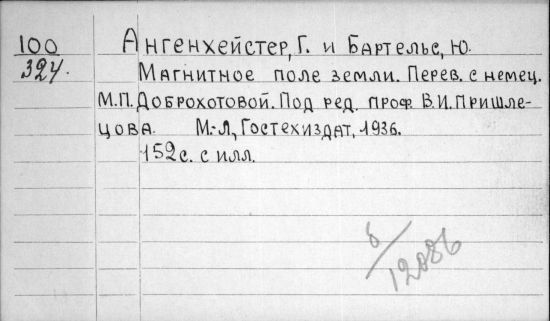 100 Ангенхейстер, Г. и Бартельс, Ю.
324. Магнитное поле земли. Перев. с немец.
М.П. Доброхотовой. Под ред. проф. В.И. Пришле-
цова. М.-Л, Гостехиздат, 1936.
152с. с илл.